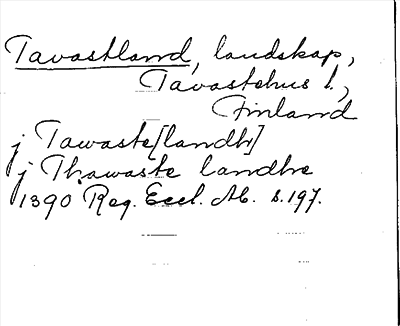 Tavastland, landskap,
Tavastehus l.,
Finland
j Tawaste[landh]
j Thawaste landhe
1390 Reg. Eccl. Ab. s.197.